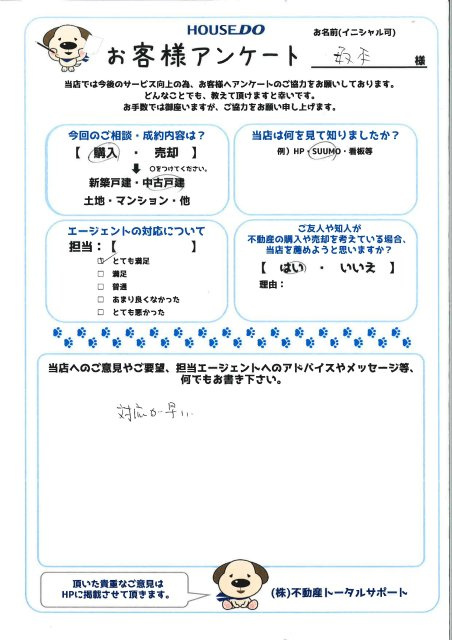 HOUSEDO
お名前(イニシャル可)
お客様アンケート
様
当店では今後のサービス向上の為、お客様へアンケートのご協力をお願いしております。
どんなことでも、教えて頂けますと幸いです。
お手数では御座いますが、ご協力をお願い申し上げます。
今回のご相談・成約内容は?
【 購入 ・ 売却 】
○をつけてください。
新築戸建・中古戸建
土地・マンション・他
当店は何を見て知りましたか?
例）HP・SUUMO・看板等
エージェントの対応について
担当：【 】
☑ とても満足
□ 満足
□ 普通
□ あまり良くなかった
□ とても悪かった
ご友人や知人が
不動産の購入や売却を考えている場合、
当店を薦めようと思いますか?
【 はい ・ いいえ 】
理由：
当店へのご意見やご要望、担当エージェントへのアドバイスやメッセージ等、
何でもお書き下さい。
対応が早い
頂いた貴重なご意見は
HPに掲載させて頂きます。
(株)不動産トータルサポート